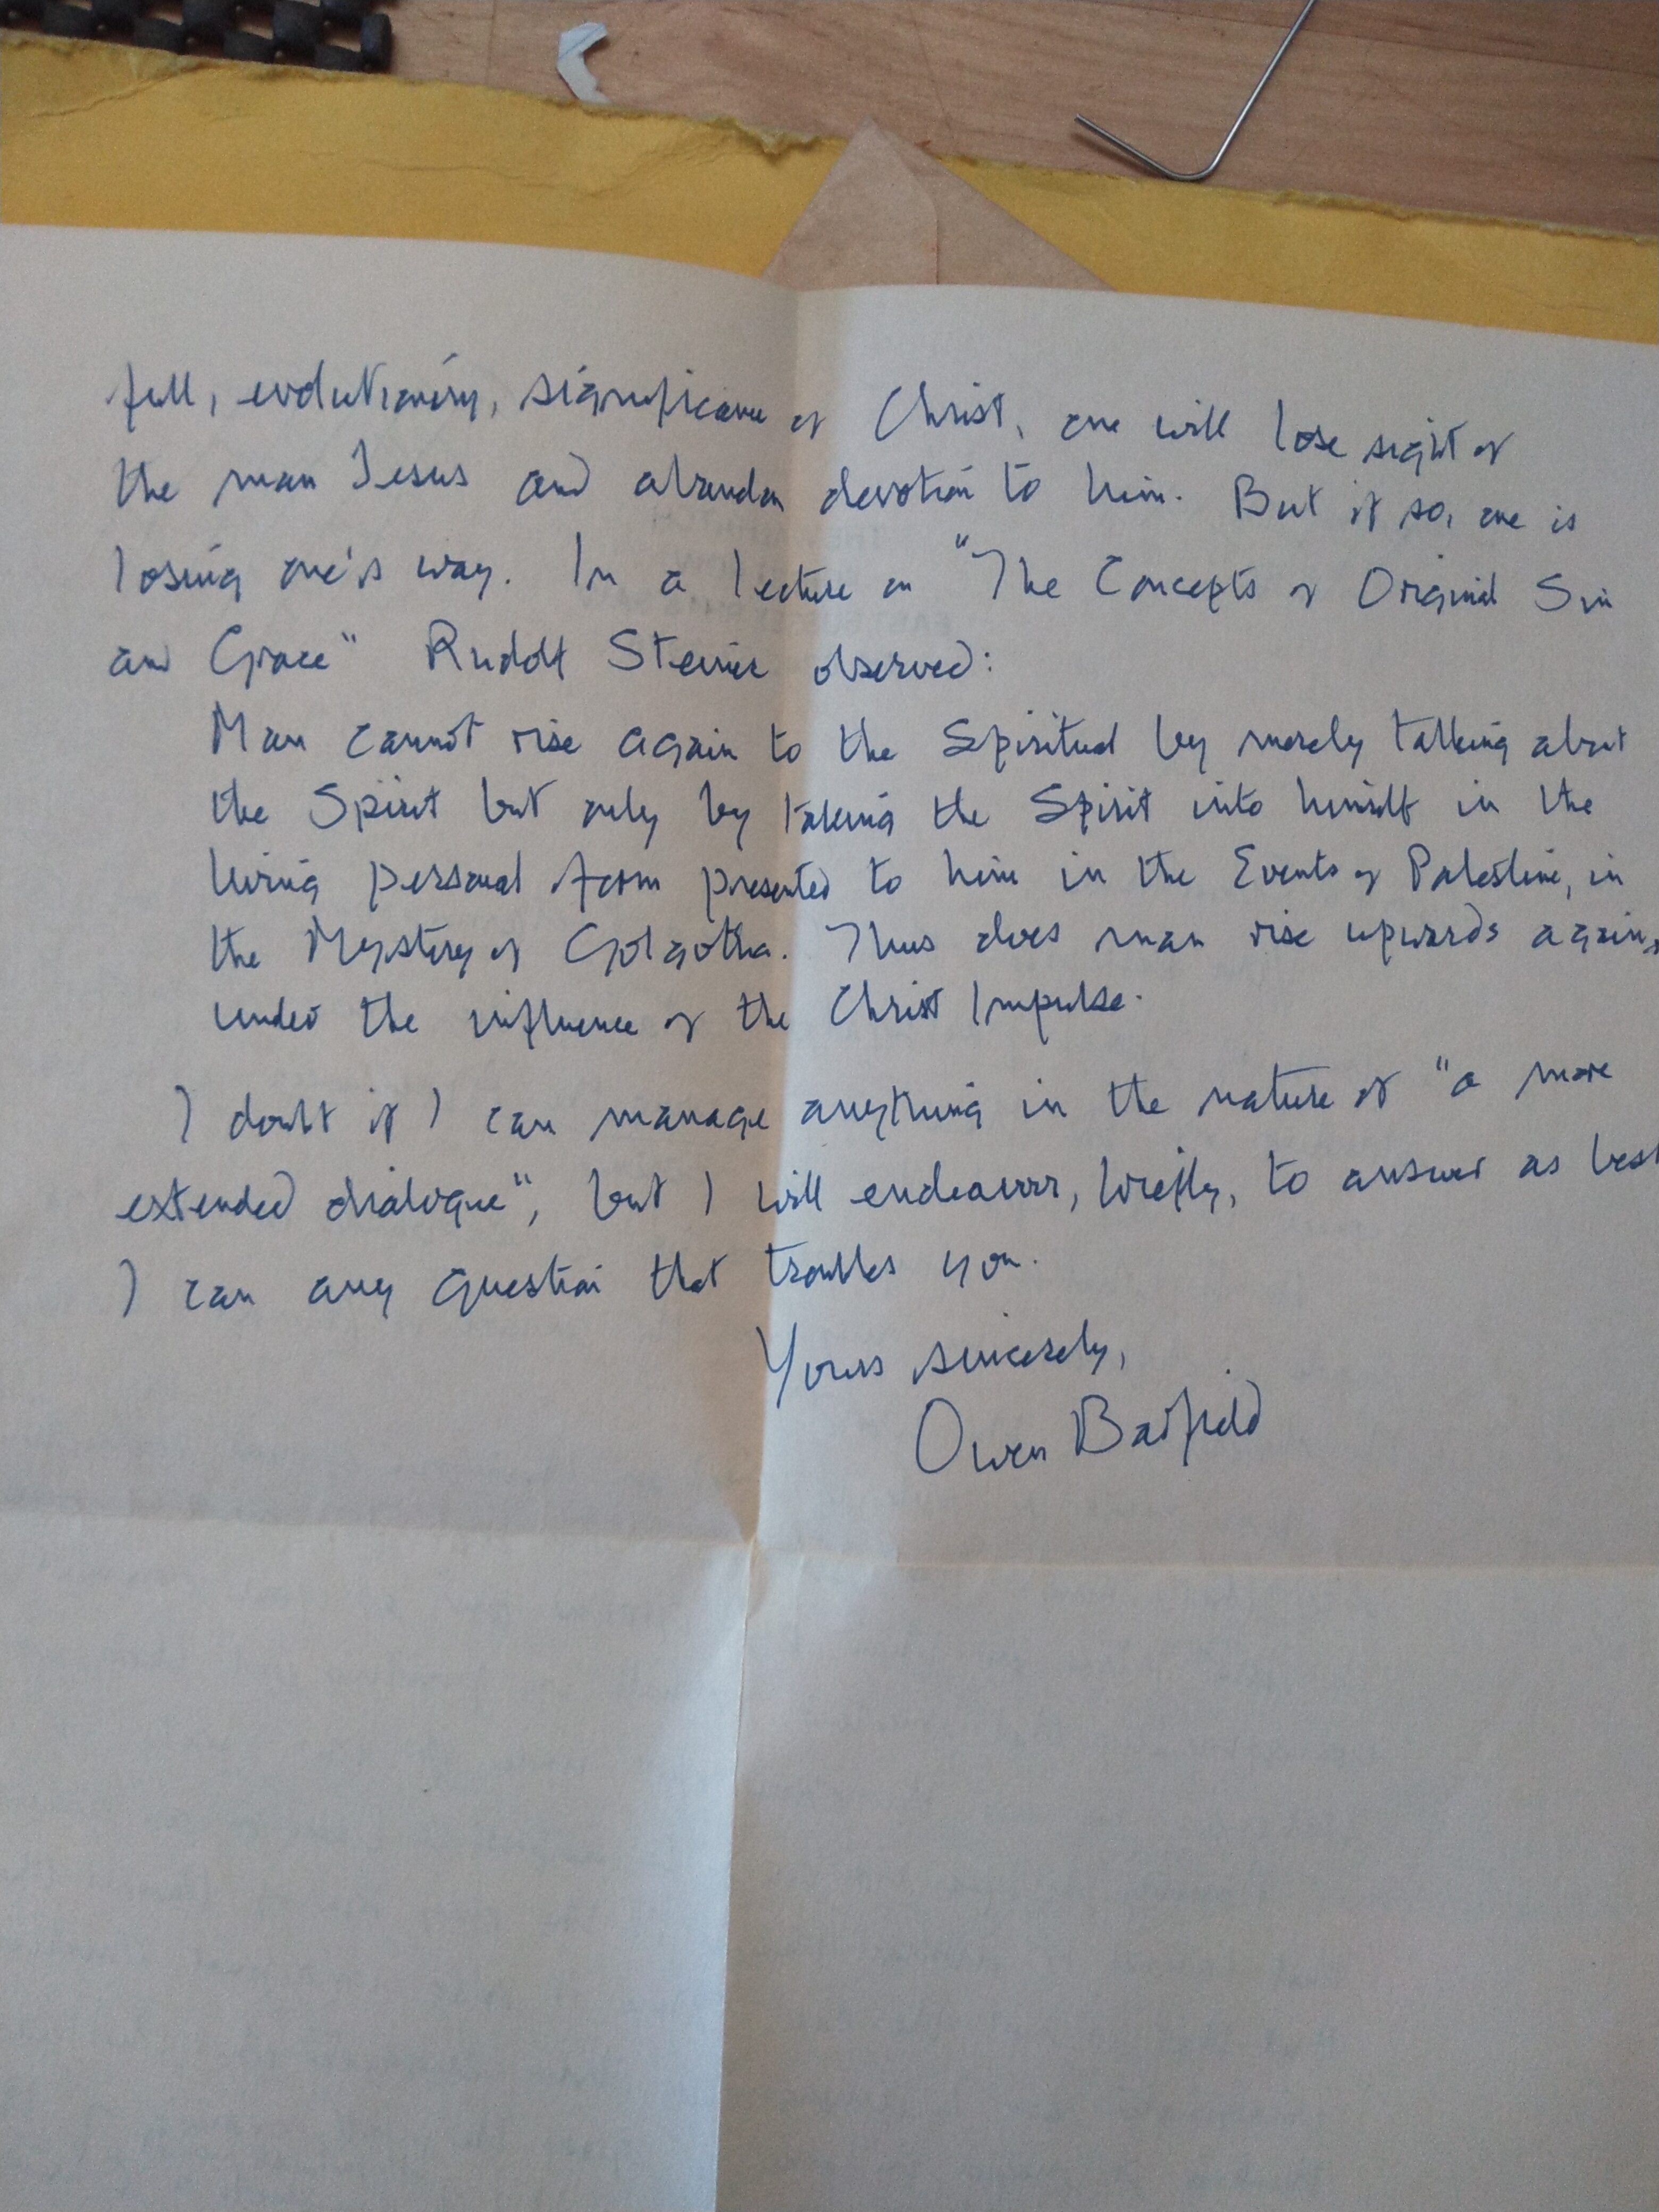 full, evolutionary, significance of Christ, one will lose sight of
the man Jesus and abandon devotion to him. But if so, one is
losing one's way. In a lecture on "The Concepts of Original Sin
and Grace" Rudolf Steiner observed:
Man cannot rise again to the Spiritual by merely talking about
the Spirit but only by taking the Spirit into himself in the
living personal form presented to him in the Events of Palestine, in
the Mystery of Golgotha. Thus does man rise upwards again,
under the influence of the Christ Impulse.
I doubt if I can manage anything in the nature of "a more
extended dialogue", but I will endeavour, briefly, to answer as best
I can any question that troubles you.
Yours sincerely,
Owen Barfield